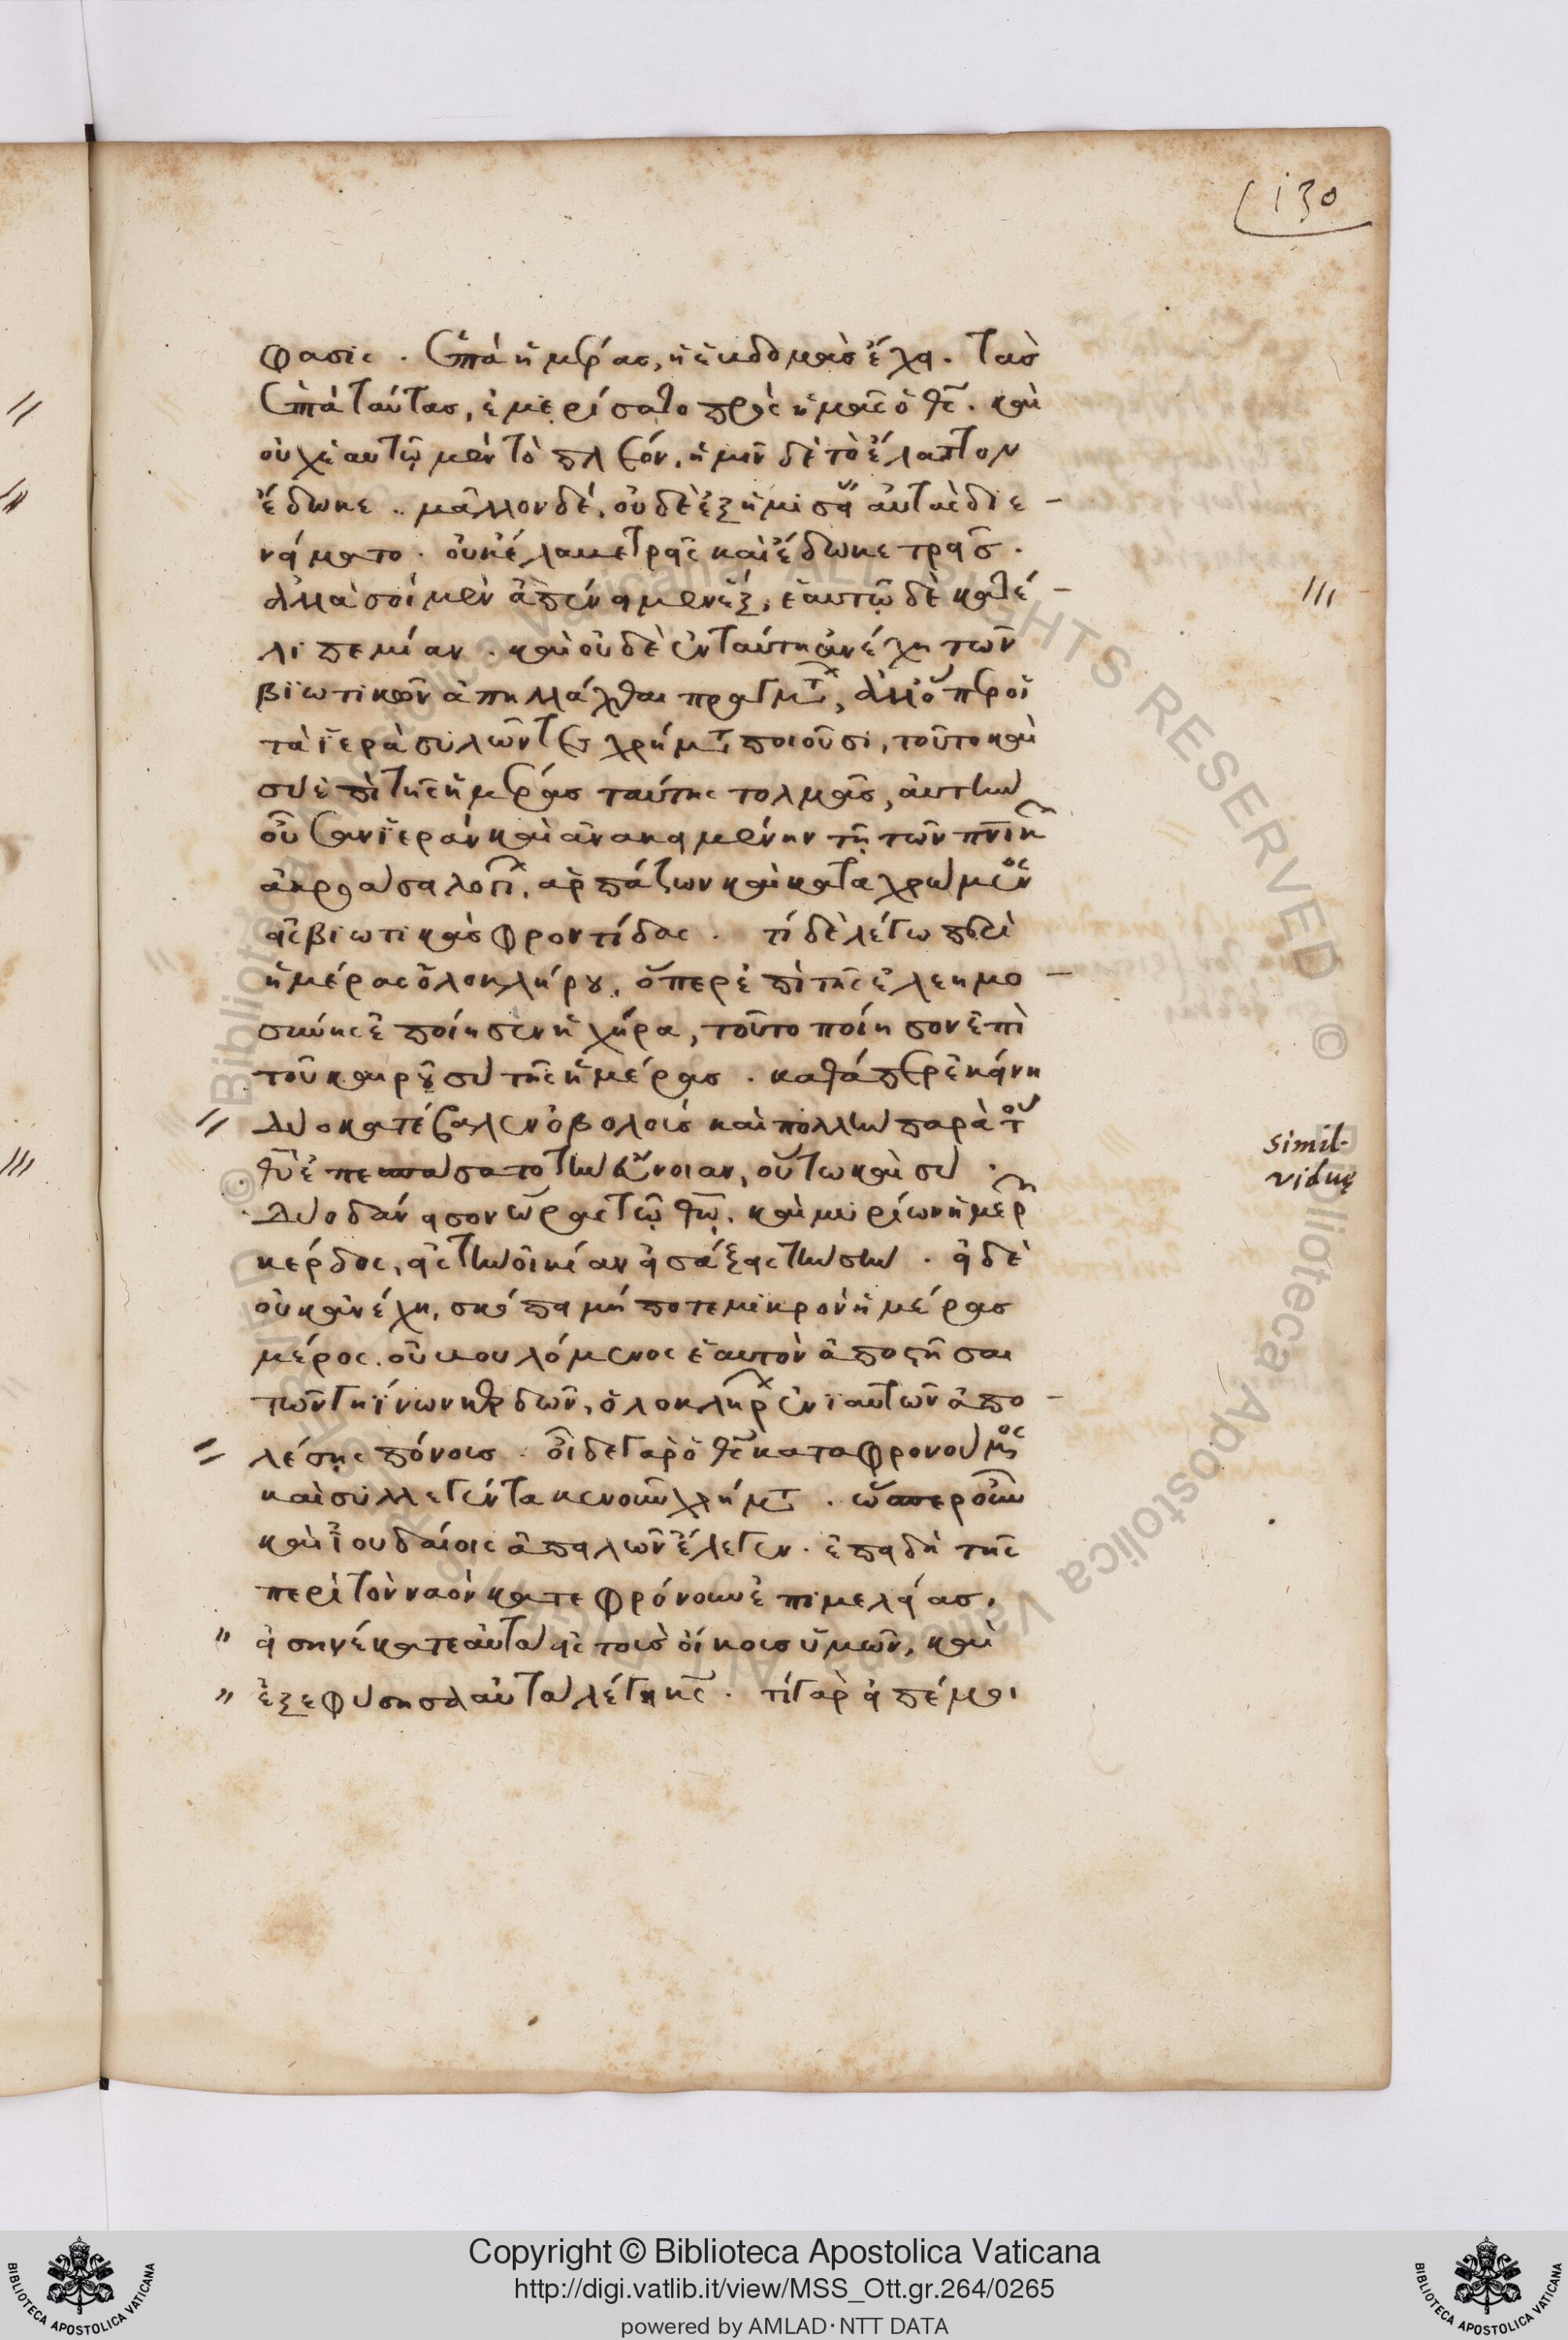 130
φασις. ἑπτὰ ἡμέρας, ἡ ἑβδομὰς ἔχει. τὰς
ἑπτὰ ταύτας, ἐμερίσατο πρὸς ἡμᾶς ὁ θς̅. καὶ
οὐχ ἑαυτῷ μὲν τὸ πλέον, ἡμῖν δὲ τὸ ἔλαττον
ἔδωκε. μᾶλλον δὲ, οὐδὲ ἐξημισείας αὐτὰς διε-
νείματο. οὐκ ἔλαβε τρεῖς καὶ ἔδωκε τρεῖς.
ἀλλὰ σοὶ μὲν ἀπένειμεν ἓξ, ἑαυτῷ δὲ κατέ-
λιπε μίαν. καὶ οὐδὲ ἐν ταύτῃ ἀνέχῃ τῶν
βιωτικῶν ἀπηλλάχθαι πραγμτ, ἀλλ' ὅπερ οἱ
τὰ ἱερὰ συλῶντες χρήμτ ποιοῦσι, τοῦτο καὶ
σὺ ἐπὶ τῆς ἡμέρας ταύτης τολμᾷς, αὐτὴν
οὖσαν ἱερὰν καὶ ἀνακειμένην τῇ τῶν πνικ
ἀκροάσει λογι, ἁρπάζων καὶ καταχρώμενος
εἰς βιωτικὰς φροντίδας. τί δὲ λέγω περὶ
ἡμέρας ὁλοκλήρου, ὅπερ ἐπὶ τῆς ἐλεημο-
σύνης ἐποίησεν ἡ χήρα, τοῦτο ποίησον ἐπὶ
τοῦ καιροῦ σὺ τῆς ἡμέρας. καθάπερ ἐκείνη
δύο κατέβαλεν ὀβολοὺς καὶ πολλὴν παρὰ τοῦ
θυ̅ ἐπεσπάσατο τὴν εὔνοιαν, οὕτω καὶ σὺ.
δύο δάνεισον ὥρας τῷ θω̅. καὶ μυρίων ἡμερ
κέρδος, εἰς τὴν οἰκίαν εἰσάξεις τὴν σήν. εἰ δὲ
οὐκ ἀνέχῃ, σκόπει μήποτε μικρὸν ἡμέρας
μέρος. οὐ βουλόμενος ἑαυτὸν ἀποστῆσαι
τῶν γηΐνων κερδῶν, ὁλοκλήρ ἐνιαυτῶν ἀπο-
λέσῃς πόνους. οἶδε γὰρ ὁ θς̅ καταφρονούμενος
καὶ συλλεγέντα κενοῦν χρήμτ. ὥσπερ οὖν
καὶ Ἰουδαίοις ἀπειλῶν ἔλεγεν. ἐπειδὴ τῆς
περὶ τὸν ναὸν κατεφρόνουν ἐπιμελείας.
" εἰσηνέκατε αὐτὰ εἰς τοὺς οἴκους ὑμῶν, καὶ
" ἐξεφύσησα αὐτὰ λέγει κς̅. τί γὰρ εἰπέ μοι
simil-
viduę
Copyright © Biblioteca Apostolica Vaticana
http://digi.vatlib.it/view/MSS_Ott.gr.264/0265
powered by AMLAD·NTT DATA